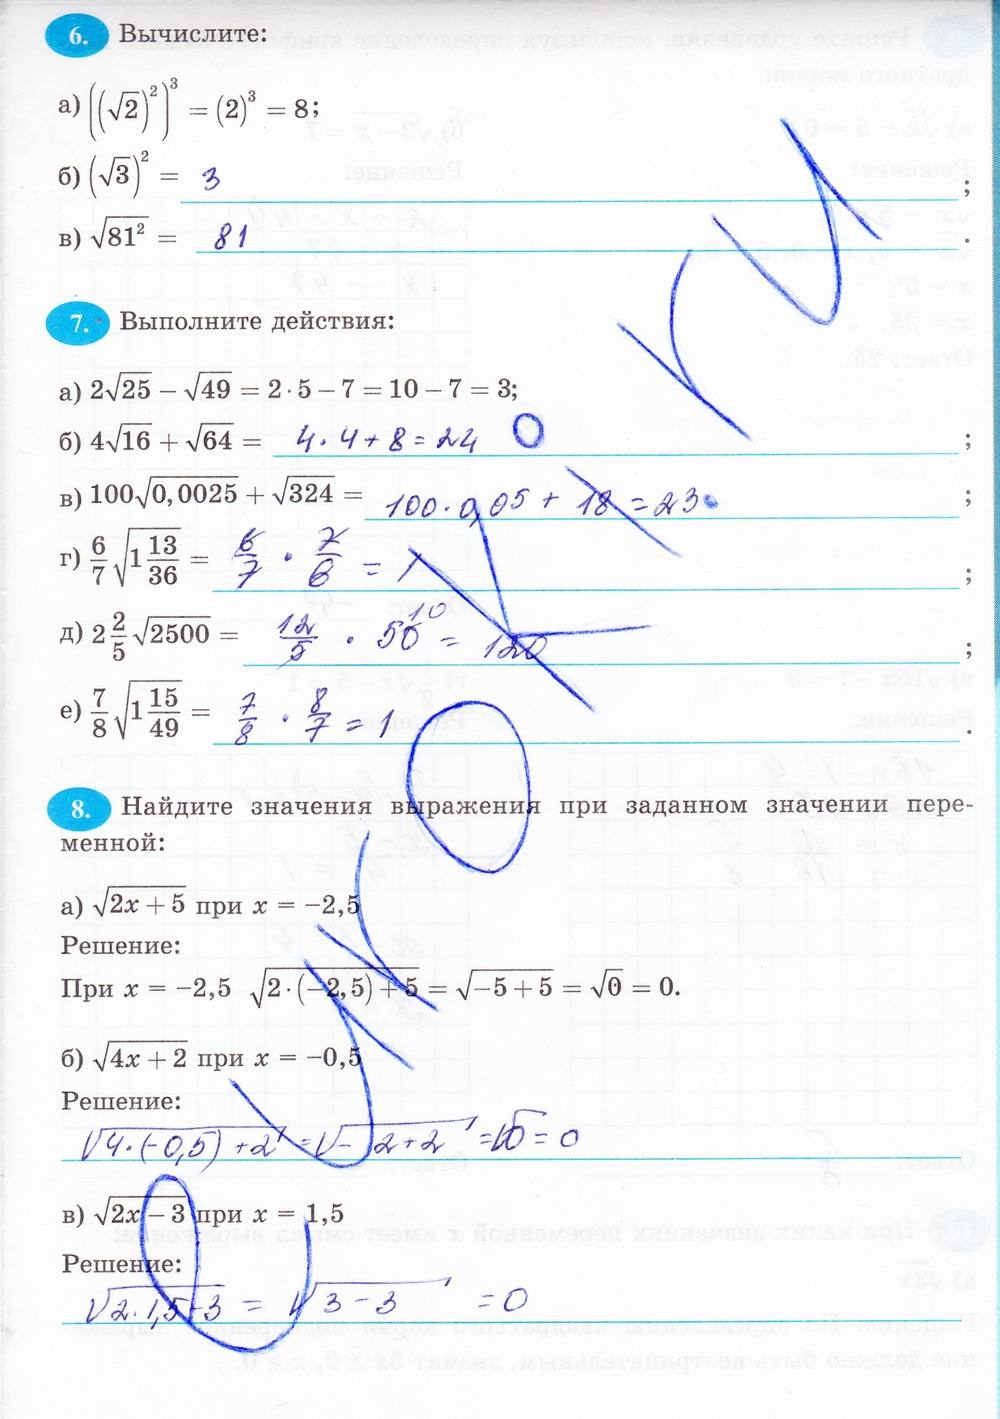 6. Вычислите:
а) ((√2)²)³ = (2)³ = 8;
б) (√3)² = 3 ;
в) √81² = 81 .
7. Выполните действия:
а) 2√25 − √49 = 2·5 − 7 = 10 − 7 = 3;
б) 4√16 + √64 = 4·4+8=24 ;
в) 100√0,0025 + √324 = 100·0,05 + 18 = 23 ;
г) 6/7 √1 13/36 = 6/7 · 7/6 = 1 ;
д) 2 2/5 √2500 = 12/5 · 50 10 = 120 ;
е) 7/8 √1 15/49 = 7/8 · 8/7 = 1 .
8. Найдите значения выражения при заданном значении пере-
менной:
а) √2x + 5 при x = −2,5
Решение:
При x = −2,5 √2·(−2,5) + 5 = √−5 + 5 = √0 = 0.
б) √4x + 2 при x = −0,5
Решение:
√4·(-0,5)+2 = √-2+2 = √0 = 0
в) √2x − 3 при x = 1,5
Решение:
√2·1,5-3 = √3-3 = 0